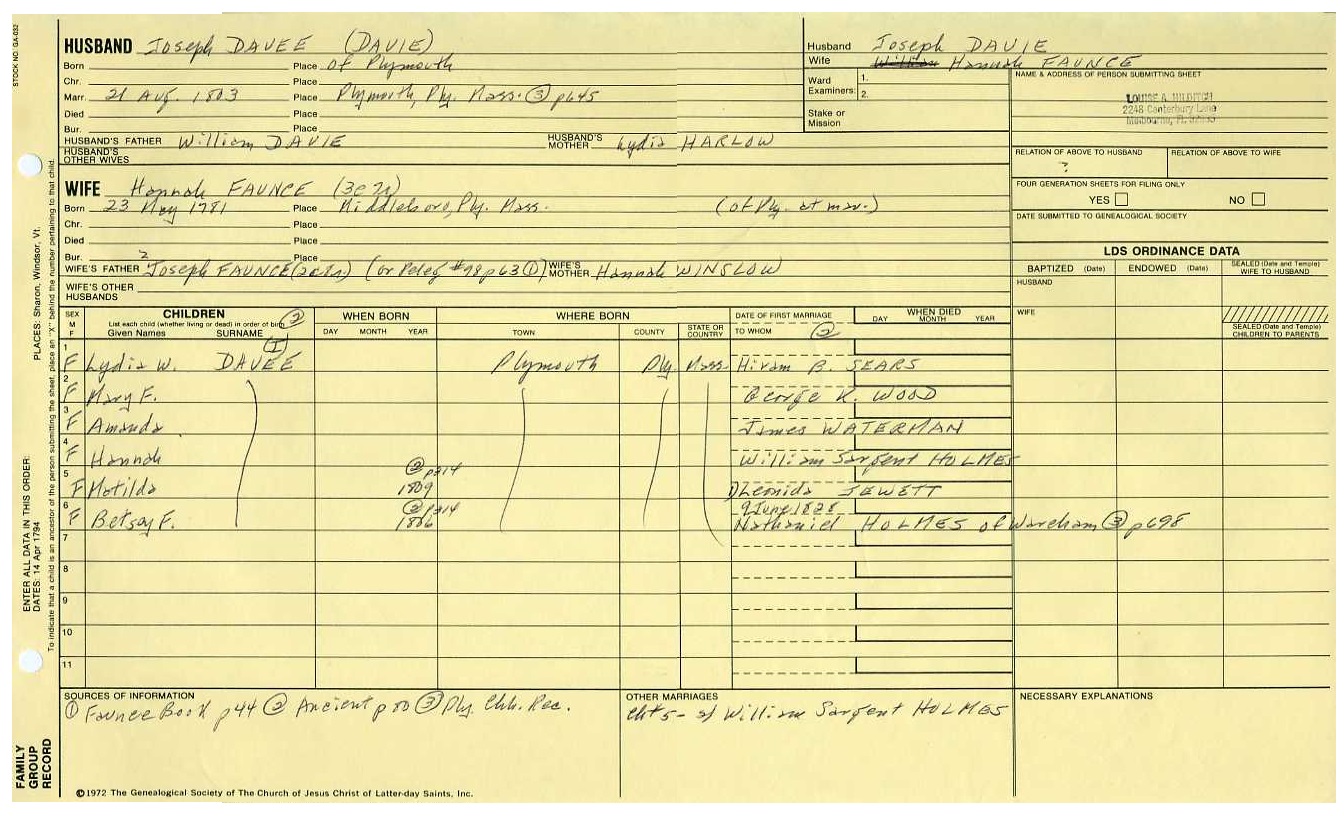 STOCK NO. GA-032
HUSBAND Joseph DAVEE (DAVIE)
Husband Joseph DAVIE
Born Place of Plymouth
Wife William Hannah FAUNCE
Chr. Place
Ward Examiners: 1. 2.
NAME & ADDRESS OF PERSON SUBMITTING SHEET
Marr. 21 Aug. 1803 Place Plymouth, Ply. Mass. ③ p645
LOUISE A. HILDITCH
2248 Canterbury Lane
Melbourne, FL
Died Place
Stake or Mission
Bur. Place
HUSBAND'S FATHER William DAVIE HUSBAND'S MOTHER Lydia HARLOW
HUSBAND'S OTHER WIVES
RELATION OF ABOVE TO HUSBAND ? RELATION OF ABOVE TO WIFE
WIFE Hannah FAUNCE
FOUR GENERATION SHEETS FOR FILING ONLY
YES NO
Born 23 May 1781 Place Middleboro, Ply. Mass. (of Ply. at mar.)
Chr. Place
DATE SUBMITTED TO GENEALOGICAL SOCIETY
Died Place
Bur. Place
LDS ORDINANCE DATA
WIFE'S FATHER 2 Joseph FAUNCE (or Peleg #98 p63 ①) WIFE'S MOTHER Hannah WINSLOW
BAPTIZED (Date) ENDOWED (Date) SEALED (Date and Temple) WIFE TO HUSBAND
WIFE'S OTHER HUSBANDS
HUSBAND
SEX M F
CHILDREN ②
List each child (whether living or dead) in order of birth
Given Names SURNAME
WHEN BORN
DAY MONTH YEAR
WHERE BORN
TOWN COUNTY STATE OR COUNTRY
DATE OF FIRST MARRIAGE
TO WHOM ②
WHEN DIED
DAY MONTH YEAR
WIFE
SEALED (Date and Temple) CHILDREN TO PARENTS
1 F Lydia W. DAVEE Plymouth Ply. Mass. Hiram B. SEARS
2 F Mary F. George K. WOOD
3 F Amanda James WATERMAN
4 F Hannah William Sargent HOLMES
5 F Motilda ② p214 1809 Leonida JEWETT
6 F Betsey F. ② p214 1806 9 June 1828 Nathaniel HOLMES of Wareham ③ p698
7
8
9
10
11
SOURCES OF INFORMATION
① Faunce Book p44 ② Ancient p80 ③ Ply. Chh. Rec.
OTHER MARRIAGES
Ch#5 - s/ William Sargent HOLMES
NECESSARY EXPLANATIONS
©1972 The Genealogical Society of The Church of Jesus Christ of Latter-day Saints, Inc.
PLACES: Sharon, Windsor, Vt.
ENTER ALL DATA IN THIS ORDER:
DATES: 14 Apr 1794
To indicate that a child is an ancestor of the person submitting the sheet, place an "X" behind the number pertaining to that child.
FAMILY GROUP RECORD